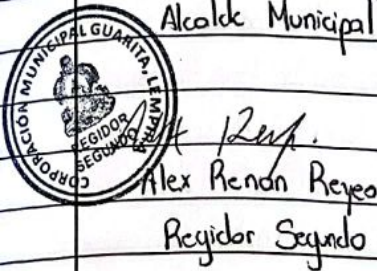 Alcalde Municipal
CORPORACIÓN MUNICIPAL GUARITA, LEMPIRA
REGIDOR
SEGUNDO
Alex Renán Reyes
Regidor Segundo